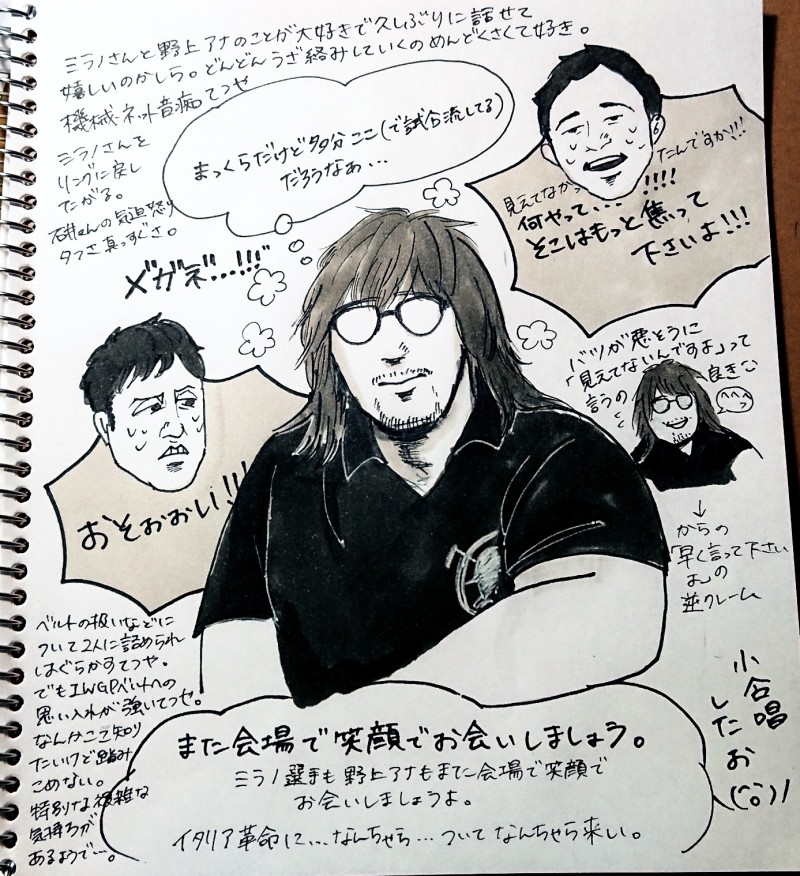 ミラノさんと野上アナのことが大好きで久しぶりに話せて
嬉しいのかしら。どんどんうざ絡みしていくのめんどくさくて好き。
機械・ネット音痴てつや
ミラノさんを
リングに戻し
たがる。
石井さんの気迫怒り
タフさ真っすぐさ。
まっくらだけど多分ここ(で試合流してる)
だろうなぁ…
見えてなかったんですか!!!
何やって...!!!!
そこはもっと焦って
下さいよ!!!
メガネ...!!!
おそおおい!!!
バツが悪そうに
「見えてないんですよ」って
言うの良き
へへへ
↓
からの
「早く言って下さい
よ」の
逆クレーム
ベルトの扱いなどに
ついて2人に詰められ
はぐらかすてつや。
でもIWGPベルトへの
思い入れが強いてつや。
なんかここ知り
たいけど踏み
こめない。
特別な複雑な
気持ちが
あるようで…。
また会場で笑顔でお会いしましょう。
ミラノ選手も野上アナもまた会場で笑顔で
お会いしましょうよ。
イタリア革命に...なんちゃら...ついてなんちゃら来い。
小合唱
したお